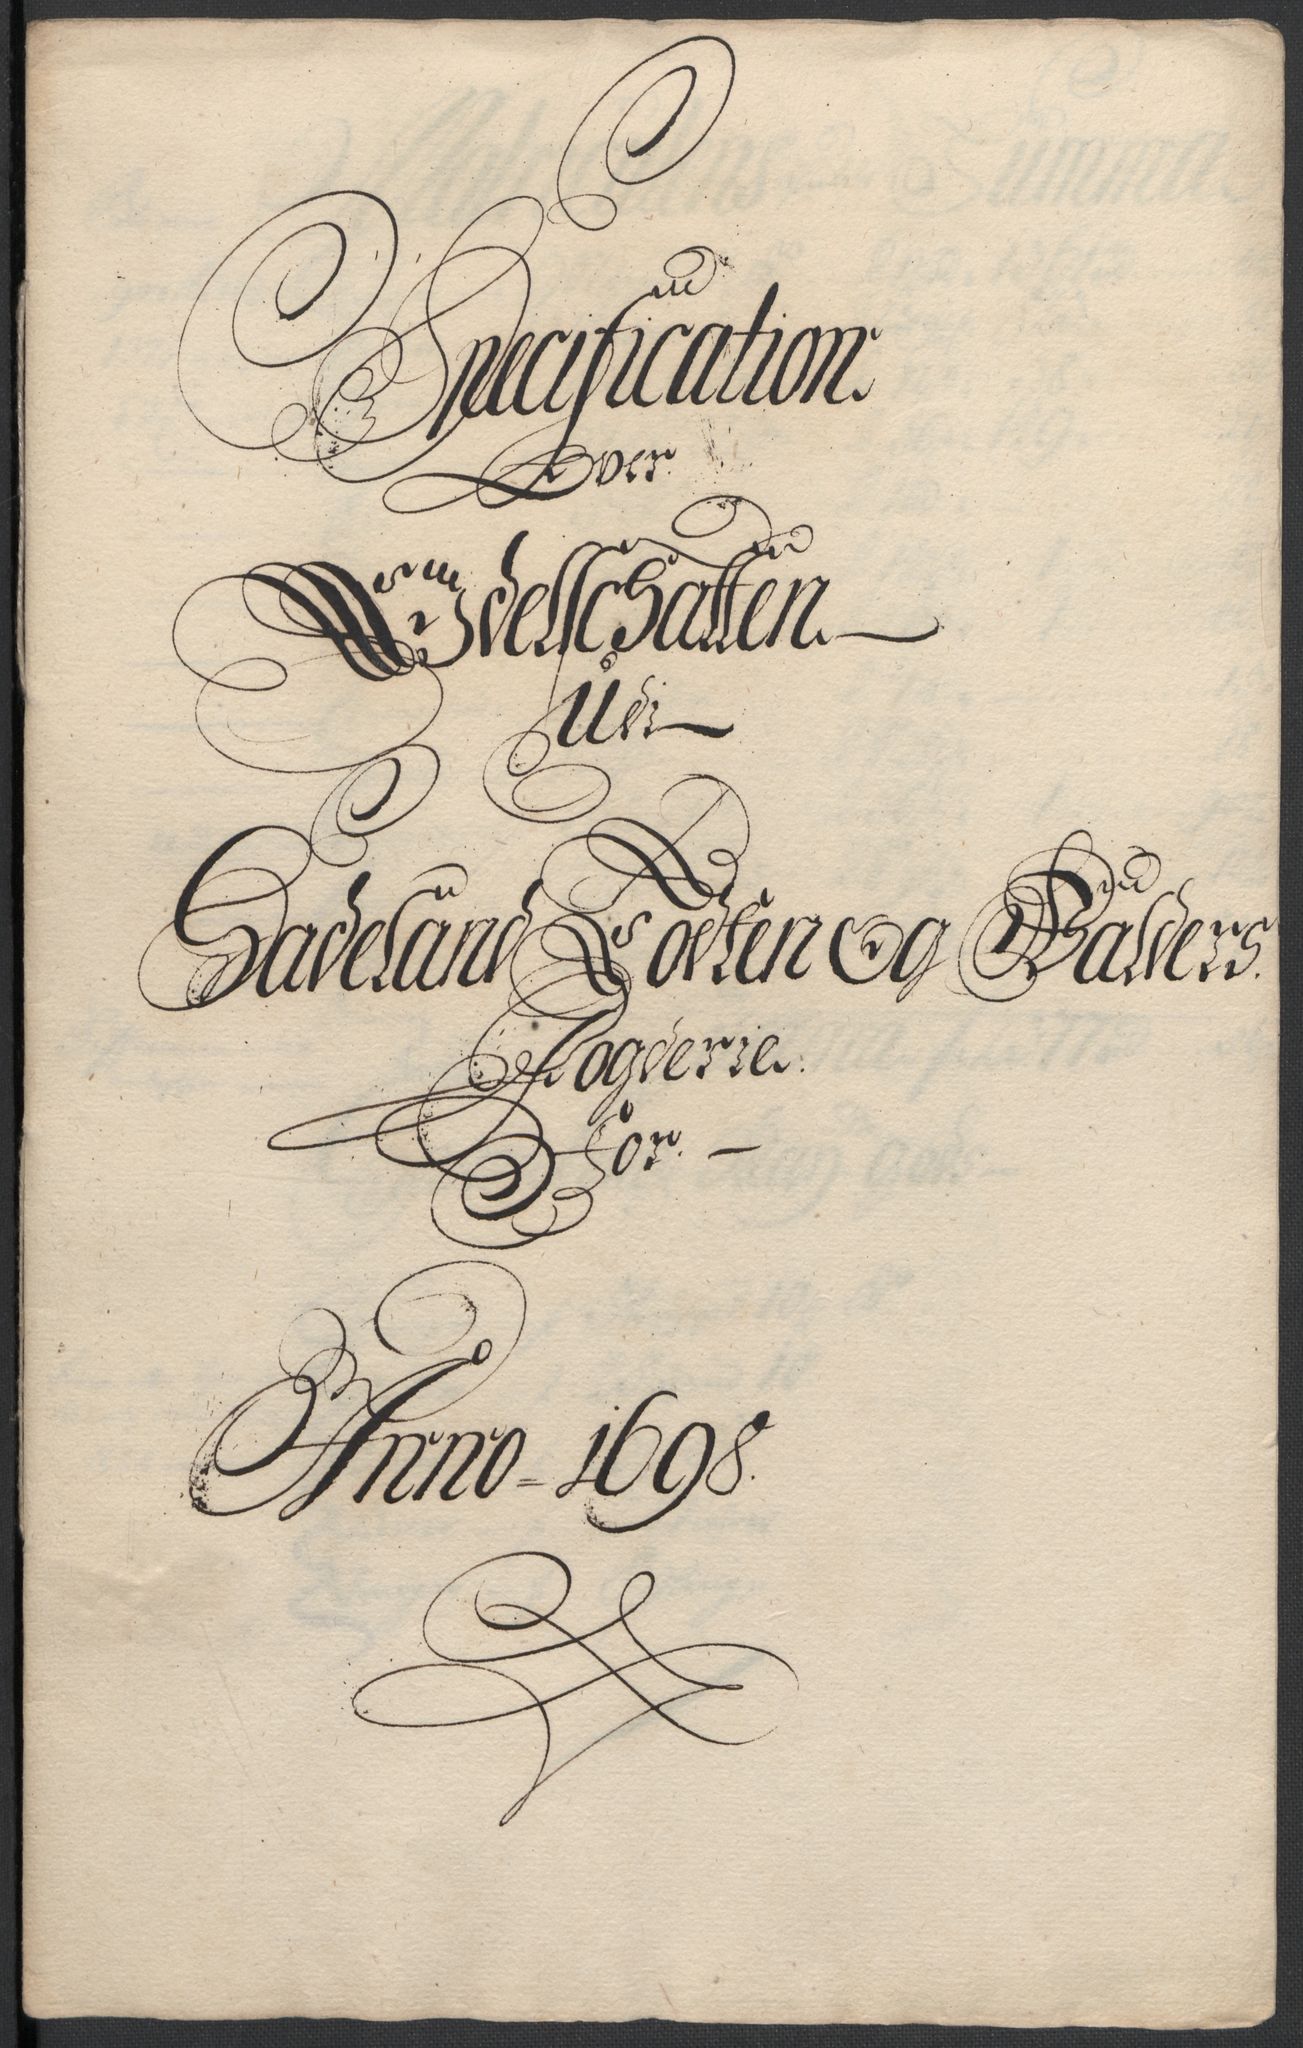 Specification
Over
Odelschatten
Udi
Hadeland Todten Og Walders
Fogderie
For
Anno 1698